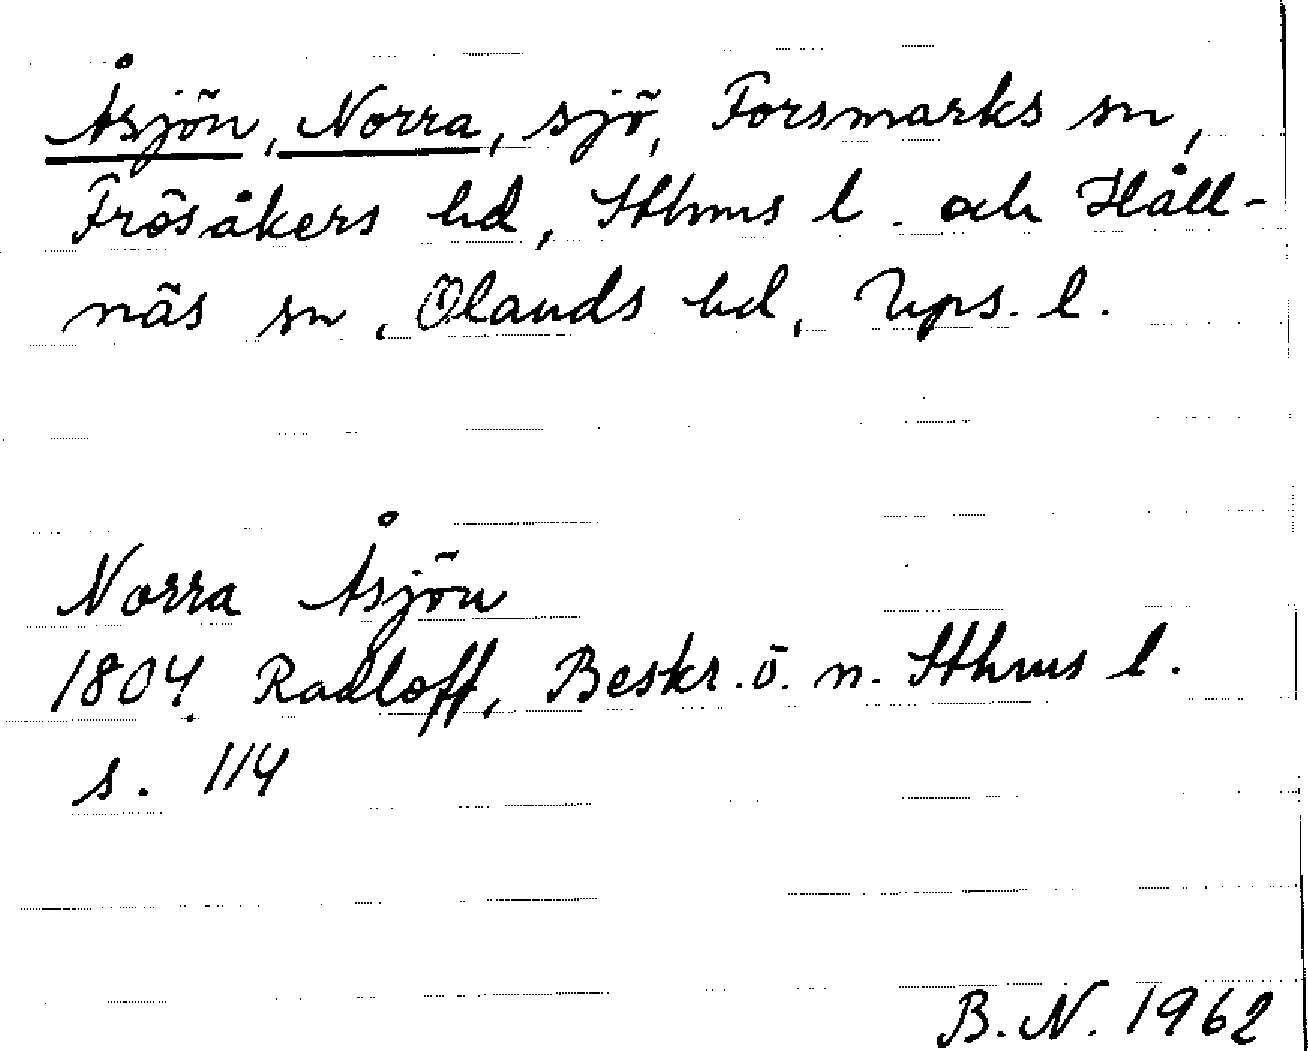 Åsjön, Norra, sjö, Forsmarks sn,
Frösåkers hd, Sthms l. och Håll-
näs sn, Olands hd, Upps. l.
Norra Åsjön
1804. Radloff, Beskr. ö. n. Sthms l.
s. 114
B. N. 1962